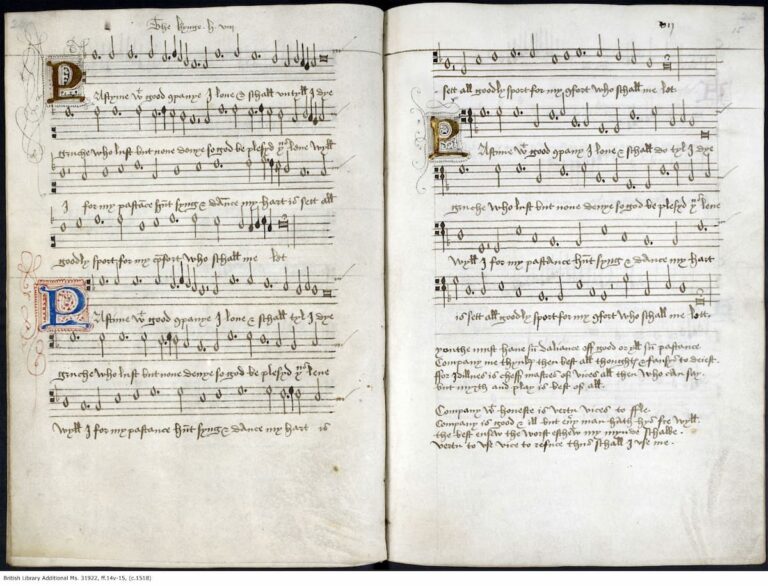 The kynge . h . viij
PAstyme wt good 9panye I love & schall untyll I dye
gruche who lust but none denye so god be plesyd yus leve wyll
I for my pastāce hūt syng & dāce my hart is sett all
goodly sport for my cōfort who schall me lett
PAstyme wt good 9panye I love & schall tyl I dye
gruche who lust but none denye so god be plesyd yus leve
wyll I for my pastance hūt syng & dance my hart is
15
sett all goodly sport for my 9fort who schall me lett
PAstyme wt good 9pany I love & schall do tyl I dye
gruche who lust but none denye so god be plesyd yus leve
wyll I for my pastance hūt syng & dance my hart
is sett all goodly sport for my 9fort who schall me lett.
youthe must have sū daliance off good or yll sū pastance.
Company me thynkes then best all thoughtes & fansys to deiest.
ffor Idillnes is cheff mastres of vices all then who can say.
but myrth and play is best of all.
Company wt honeste is vertu vices to ffle.
Company is good & ill but evy man hath hys fre wyll.
the best ensew the worst eschew my mynde schalbe.
vertu to use vice to refuce thus schall I use me.
British Library Additional Ms. 31922, ff.14v-15, (c.1518)